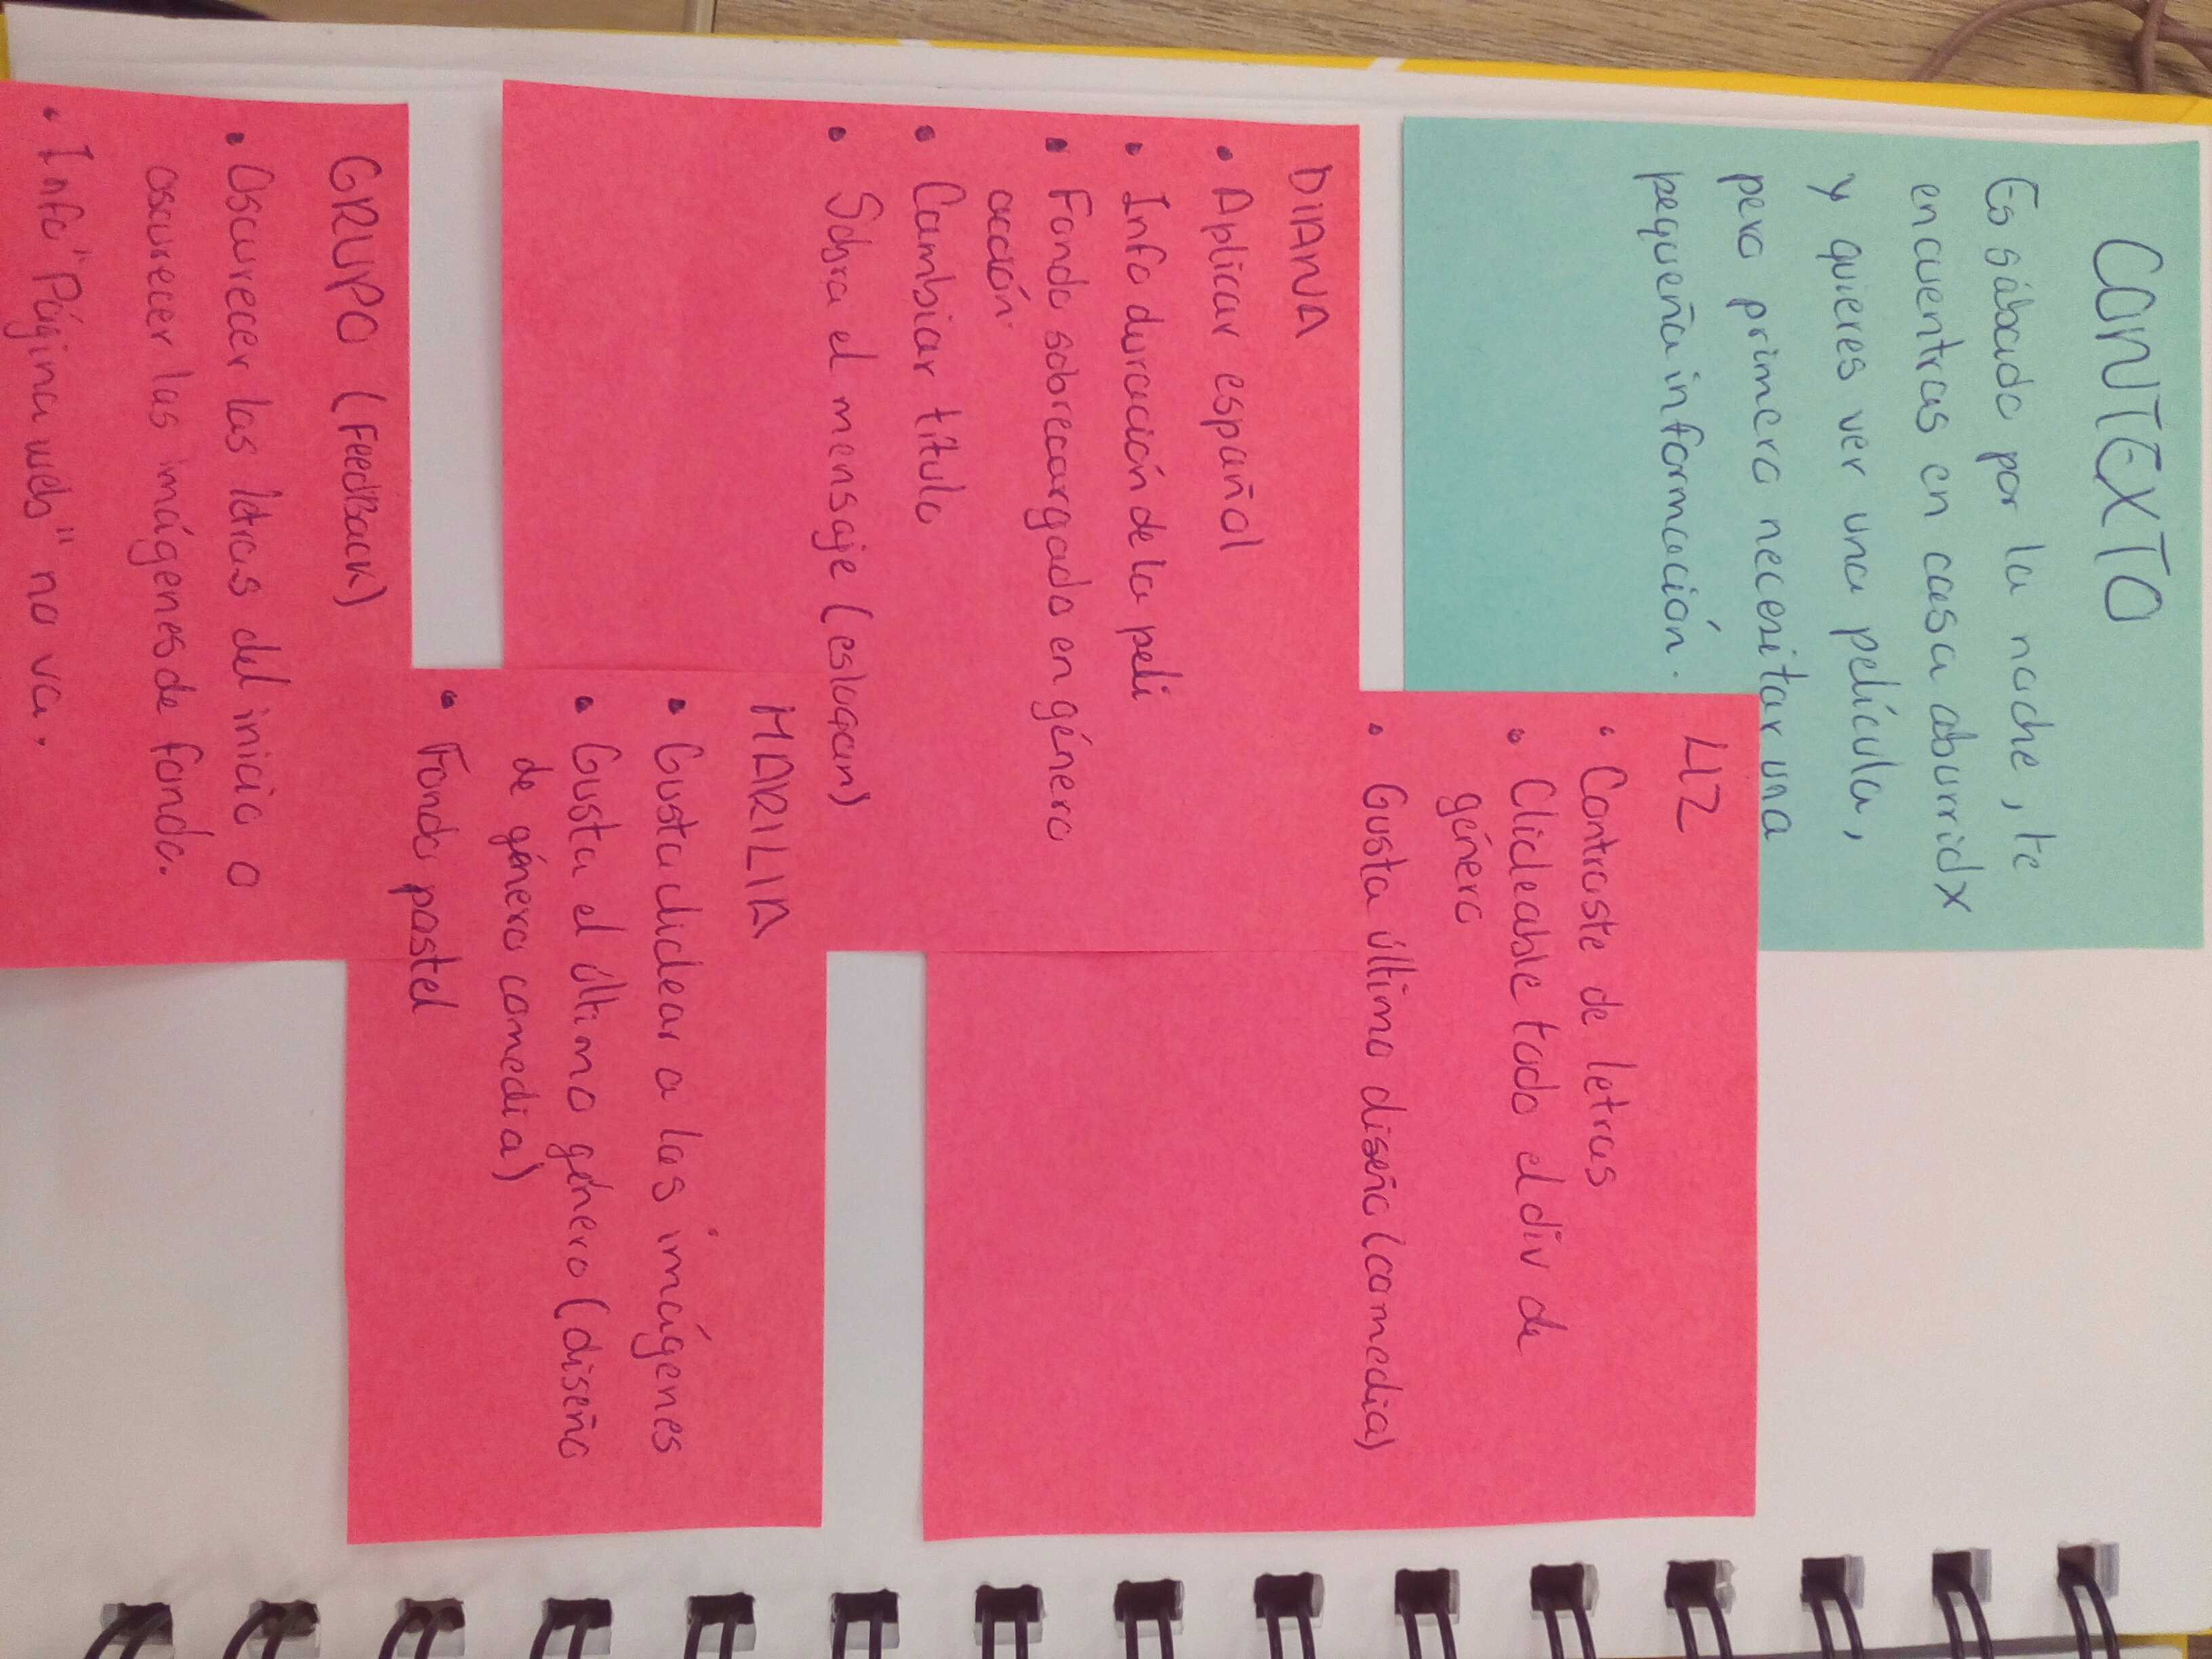 CONTEXTO
Es sábado por la noche, te
encuentras en casa aburridx
y quieres ver una película,
pero primero necesitar una
pequeña información.
LIZ
• Contraste de letras
• Clickeable todo el div de
género
• Gusta último diseño (comedia)
DIANA
• Aplicar español
• Info duración de la peli
• Fondo sobrecargado en género
acción.
• Cambiar título
• Sobra el mensaje (eslogan)
MARILIA
• Gusta clickear a las imágenes
• Gusta el último género (diseño
de género comedia)
• Fondo pastel
GRUPO (FeedBack)
• Oscurecer las letras del inicio o
oscurecer las imágenes de fondo.
• Info "Página web" no va.